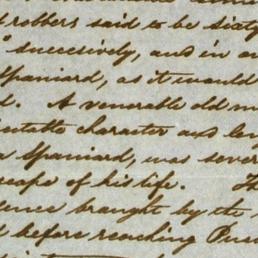 robbers said to be sixty
" succesively, and in a
Spaniard, as it would
d. A venerable old m
utable character and len
a Spaniard, was sever
scape of his life. Th
dence brought by the
d before reaching Pue